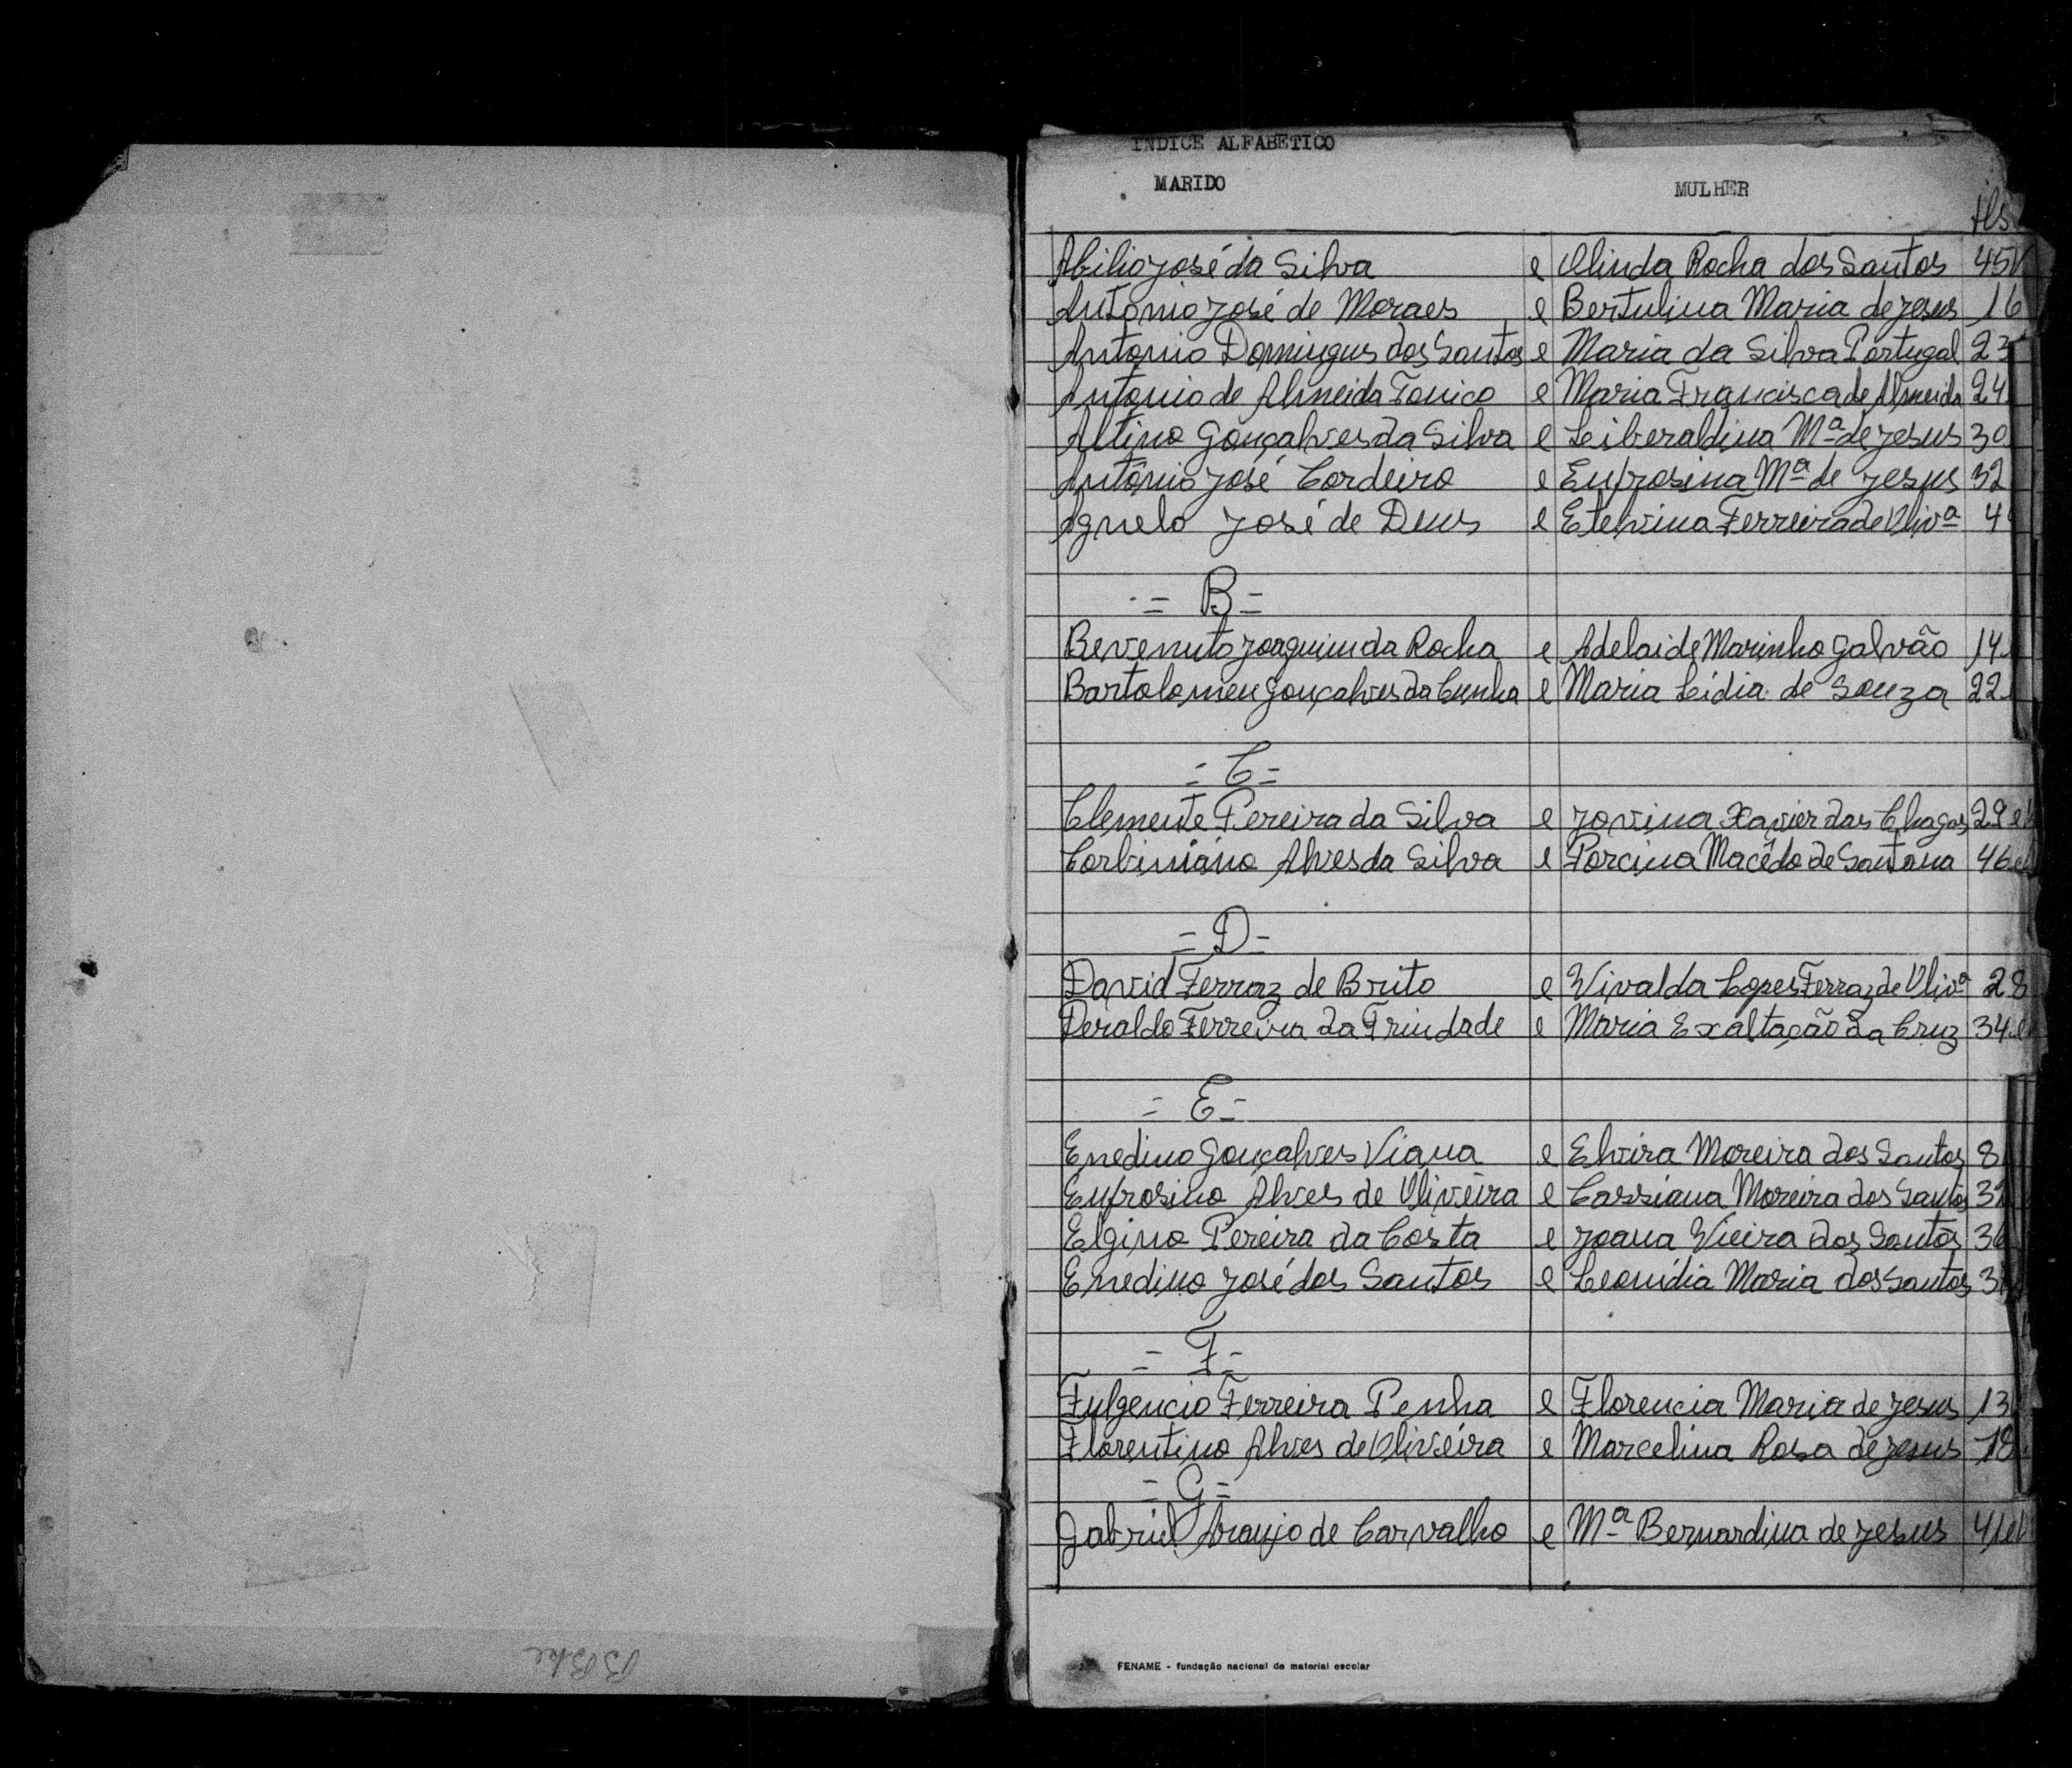 INDICE ALFABETICO
MARIDO MULHER
fls.
Abilio José da Silva e Olinda Rocha dos Santos 45v
Antonio José de Moraes e Bertulina Maria de Jesus 16
Antonio Domingues dos Santos e Maria da Silva Portugal 23
Antonio de Almeida Tonico e Maria Francisca de Almeida 24
Altino Gonçalves da Silva e Leiberaldina Mª de Jesus 30
Antônio José Cordeiro e Eufrosina Mª de Jesus 32
Agnelo José de Deus e Etelvina Ferreira de Olivª 4
= B =
Bevenuto Joaquim da Rocha e Adelaide Marinho Galvão 14
Bartolomeu Gonçalves da Cunha e Maria Lidia de Souza 22
= C =
Clemente Pereira da Silva e Jovina Xavier das Chagas 29 e
Corbiniano Alves da Silva e Porcina Macêdo de Santana 46 e
= D =
David Ferraz de Brito e Vivalda Lopes Ferraz de Olivª 28
Deraldo Ferreira da Trindade e Maria Exaltação da Cruz 34 e
= E =
Enedino Gonçalves Viana e Elvira Moreira dos Santos 8
Eufrosino Alves de Oliveira e Cassiana Moreira dos Santos
Elgino Pereira da Costa e Joana Vieira dos Santos 36
Enedino José dos Santos e Leonídia Maria dos Santos
= F =
Fulgencio Ferreira Penha e Florencia Maria de Jesus 13
Florentino Alves de Oliveira e Marcelina Rosa de Jesus 18
= G =
Gabriel Araujo de Carvalho e Mª Bernardina de Jesus 41 e
FENAME - fundação nacional de material escolar